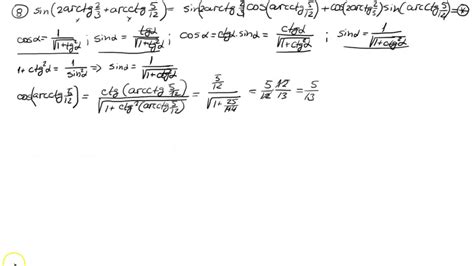 ⑧ sin(2arctg 2/3 + arcctg 5/12) = sin(2arctg 2/3)cos(arcctg 5/12) + cos(2arctg 2/3)sin(arcctg 5/12) = (*)
cosα = 1/√(1+tg²α) ; sinα = tgα/√(1+tg²α) ; cosα = ctgα.sinα = ctgα/√(1+ctg²α) ; sinα = 1/√(1+ctg²α)
1+ctg²α = 1/sin²α ⇒ sinα = 1/√(1+ctg²α)
cos(arcctg 5/12) = ctg(arcctg 5/12)/√(1+ctg²(arcctg 5/12)) = (5/12)/√(1+25/144) = 5/12 · 12/13 = 5/13